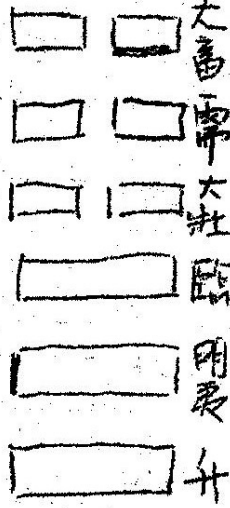 大畜
需
大壯
臨
明夷
升